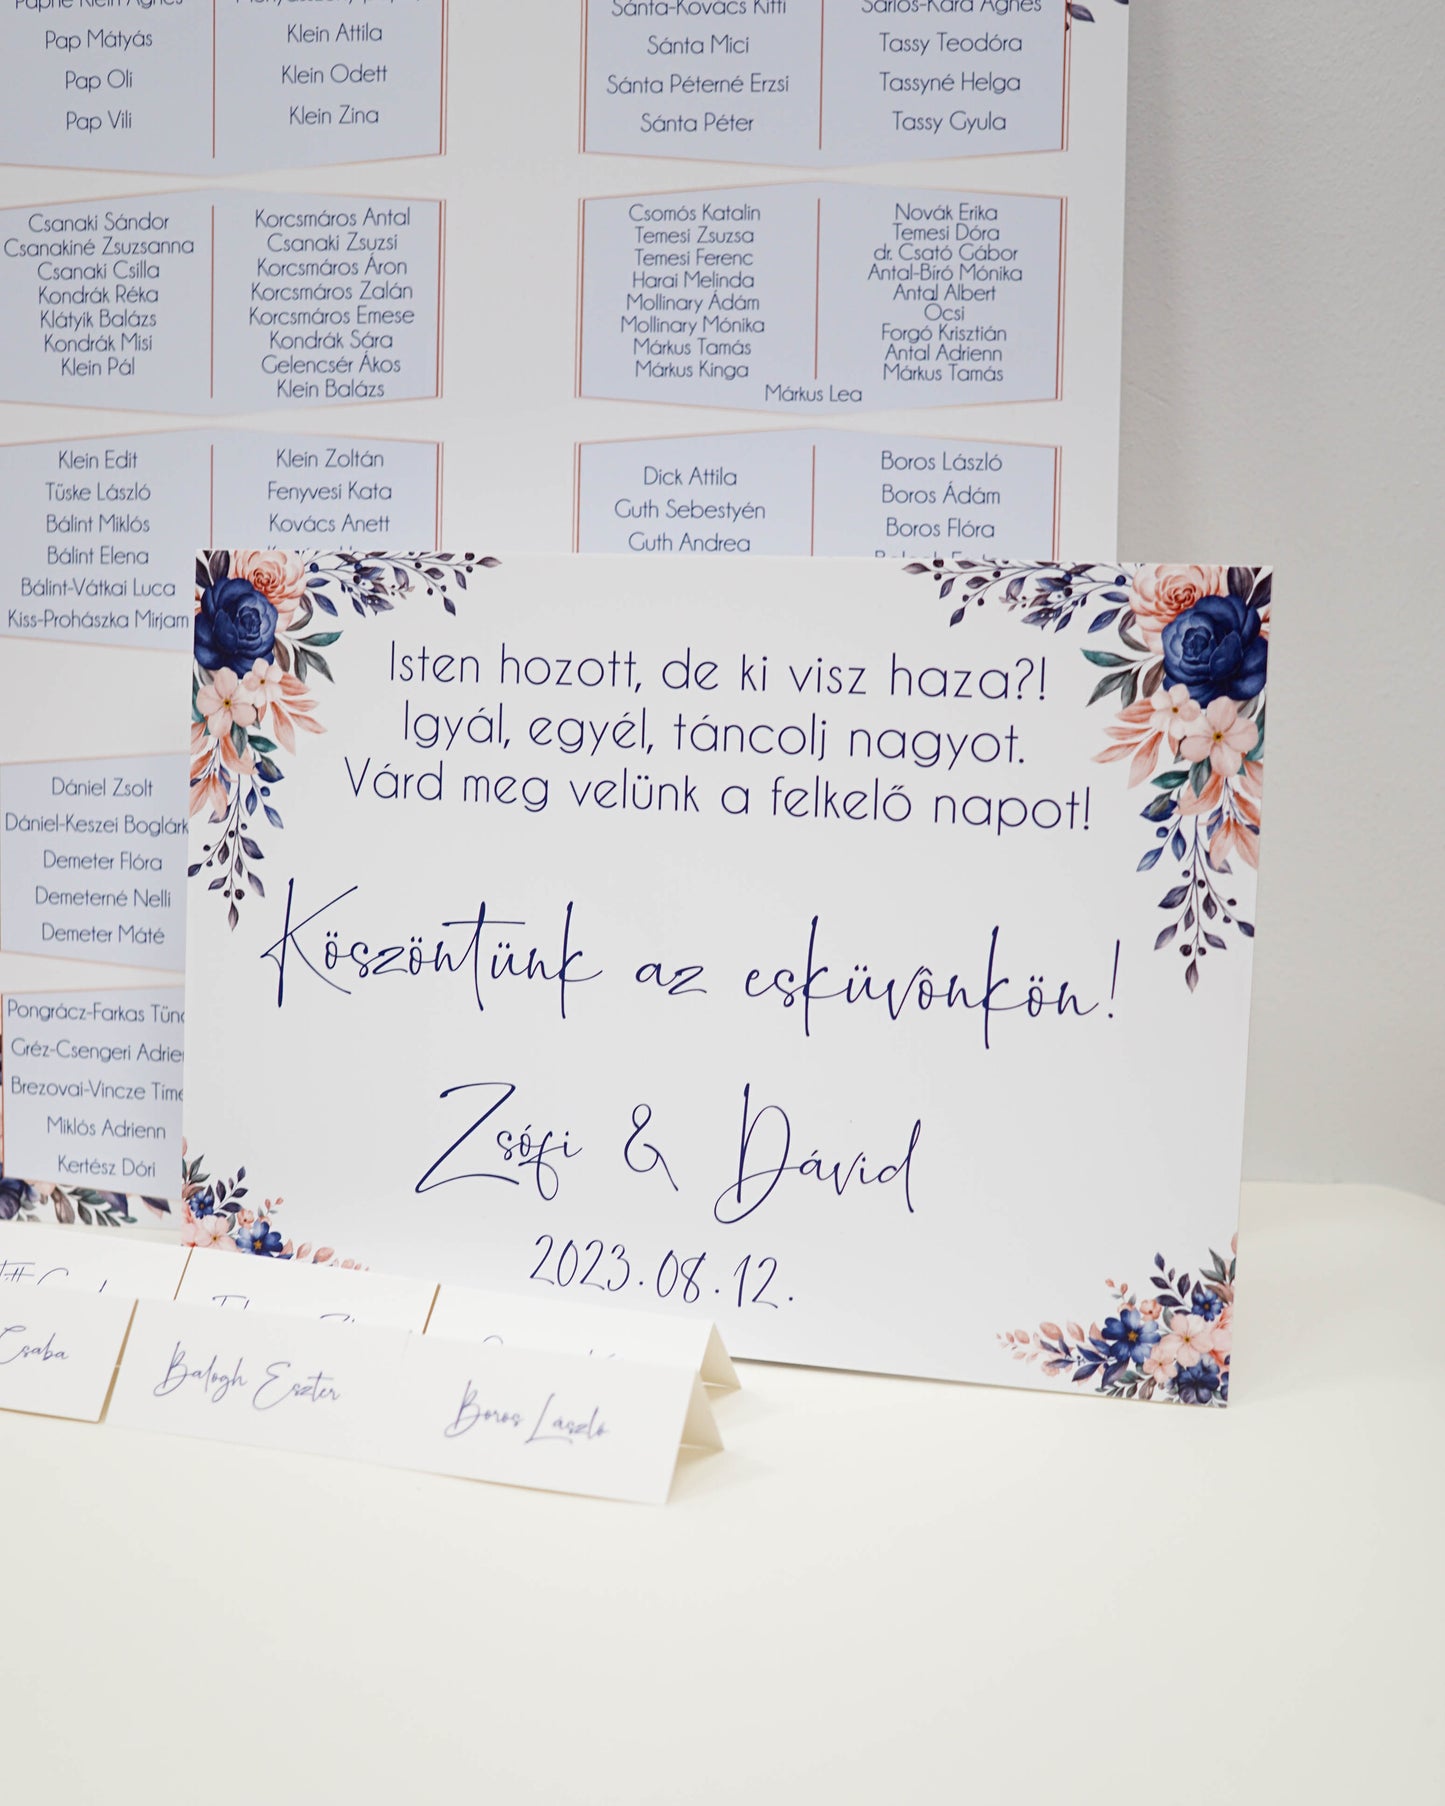 Pap Mátyás
Pap Oli
Pap Vili
Klein Attila
Klein Odett
Klein Zina
Sánta-Kovács Kitti
Sánta Mici
Sánta Péterné Erzsi
Sánta Péter
Sárlos-Kara Ágnes
Tassy Teodóra
Tassyné Helga
Tassy Gyula
Csanaki Sándor
Csanakiné Zsuzsanna
Csanaki Csilla
Kondrák Réka
Klátyik Balázs
Kondrák Misi
Klein Pál
Korcsmáros Antal
Csanaki Zsuzsi
Korcsmáros Áron
Korcsmáros Zalán
Korcsmáros Emese
Kondrák Sára
Gelencsér Ákos
Klein Balázs
Csomós Katalin
Temesi Zsuzsa
Temesi Ferenc
Harai Melinda
Mollinary Ádám
Mollinary Mónika
Márkus Tamás
Márkus Kinga
Novák Erika
Temesi Dóra
dr. Csató Gábor
Antal-Bíró Mónika
Antal Albert
Ocsi
Forgó Krisztián
Antal Adrienn
Márkus Tamás
Márkus Lea
Klein Edit
Tüske László
Bálint Miklós
Bálint Elena
Bálint-Vátkai Luca
Kiss-Prohászka Mirjam
Klein Zoltán
Fenyvesi Kata
Kovács Anett
Dick Attila
Guth Sebestyén
Guth Andrea
Boros László
Boros Ádám
Boros Flóra
Dániel Zsolt
Dániel-Keszei Boglárk
Demeter Flóra
Demeterné Nelli
Demeter Máté
Pongrácz-Farkas Tünd
Gréz-Csengeri Adrien
Brezovai-Vincze Time
Miklós Adrienn
Kertész Dóri
Isten hozott, de ki visz haza?!
Igyál, egyél, táncolj nagyot.
Várd meg velünk a felkelő napot!
Köszöntünk az esküvônkön!
Zsófi & Dávid
2023.08.12.
Csaba
Balogh Eszter
Boros László